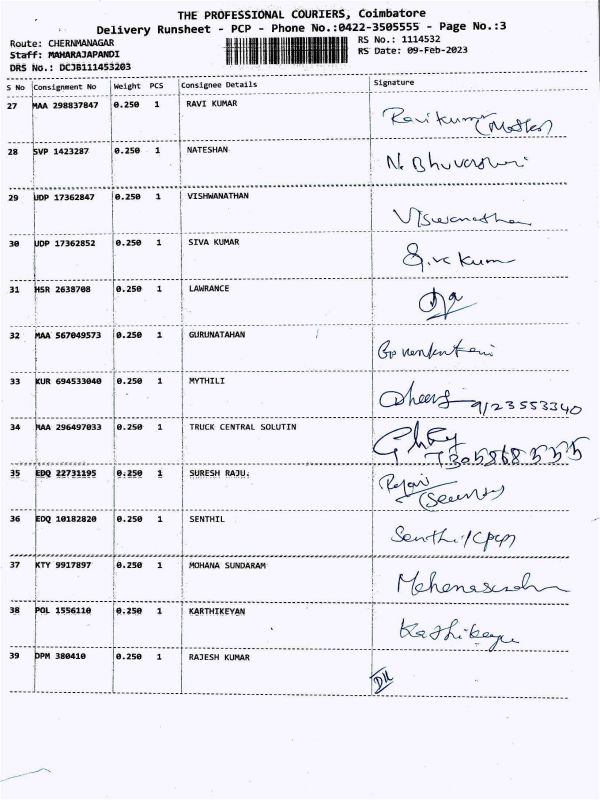 THE PROFESSIONAL COURIERS, Coimbatore
Delivery Runsheet - PCP - Phone No.:0422-3505555 - Page No.:3
Route: CHERNMANAGAR
RS No.: 1114532
Staff: MAHARAJAPANDI
RS Date: 09-Feb-2023
DRS No.: DCJB111453203
S No Consignment No Weight PCS Consignee Details Signature
27 MAA 298837847 0.250 1 RAVI KUMAR Ravikumar (Mother)
28 SVP 1423287 0.250 1 NATESHAN N. Bhuvaneshwari
29 UDP 17362847 0.250 1 VISHWANATHAN Viswanathan
30 UDP 17362852 0.250 1 SIVA KUMAR Siva kumar
31 HSR 2638708 0.250 1 LAWRANCE
32 MAA 567049573 0.250 1 GURUNATAHAN
33 KUR 694533040 0.250 1 MYTHILI 9123553340
34 MAA 296497033 0.250 1 TRUCK CENTRAL SOLUTIN 7305868555
35 EDQ 22731195 0.250 1 SURESH RAJU.
36 EDQ 10182820 0.250 1 SENTHIL Senthil (pcp)
37 KTY 9917897 0.250 1 MOHANA SUNDARAM
38 POL 1556110 0.250 1 KARTHIKEYAN
39 DPM 380410 0.250 1 RAJESH KUMAR